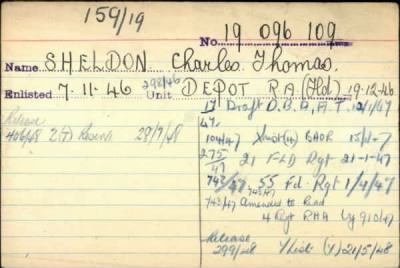 159/19
No. 19 096 109
Name SHELDON. Charles Thomas.
298/46
Enlisted 7-11-46 Unit DEPOT R.A (Fld) 19-12-46
17 Draft D.B.D, A.T. 12/1/47
47.
Release
406/48 Z(T) Reserve 29/7/48
104/47 BAOR 15/1/47
275/47 21 Fd Rgt 21-1-47
743/47 55 Fd. Rgt 1/4/47
743/47
743/47 Amended to Read
4 Regt RHA
Release
299/48 List (Y) 21/5/48